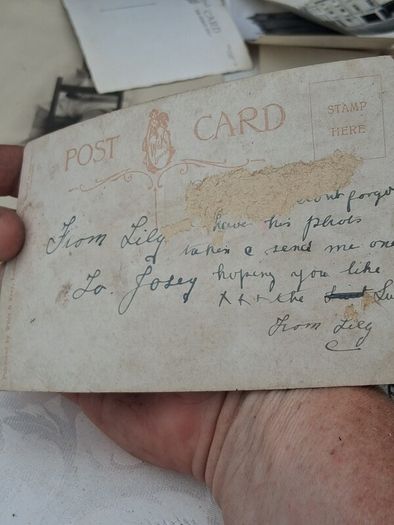 POST CARD
STAMP
HERE
dont forge
From Lily have his photo
taken & send me one
To Josey hoping you like
x x x the Su
From Lily